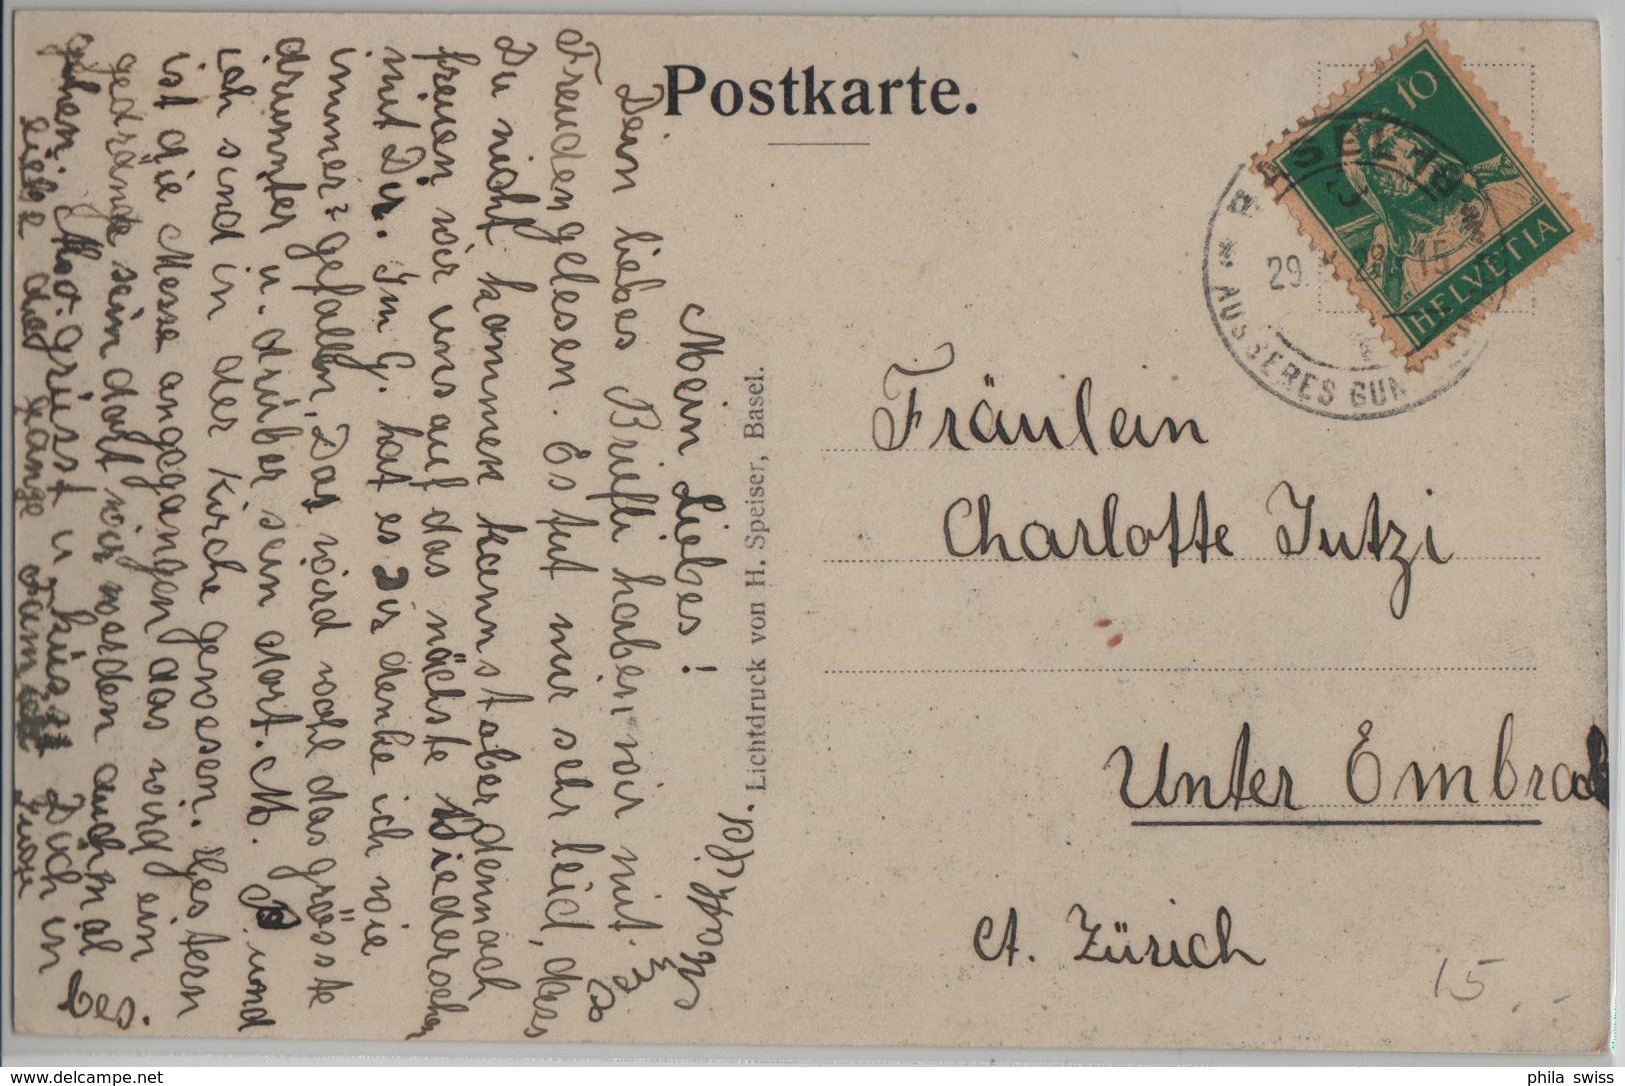 Postkarte.
Lichtdruck von H. Speiser, Basel.
10
HELVETIA
BASEL 18
29. 15
AUSSERES GUN
Fräulein
Charlotte Jutzi
Unter Embrach
Ct. Zürich
15.-
Mein Liebes!
Dein liebes Briefli haben wir mit
Freuden gelesen. Es tut mir sehr leid, dass
Du nicht kommen kannst aber demnach
freuen wir uns auf das nächste Wiedersehen
mit Dir. In G. hat es Dir denke ich wie
immer gefallen, Das wird wohl das grösste
drunter u. drüber sein dort. M. P. und
ich sind in der Kirche gewesen. Gestern
ist die Messe angegangen das wird ein
gedränge sein dort wir werden auch mal
gehen. grüsst u küsst Dich in
Liebe die ganze Fam
Mathild.
phila swiss